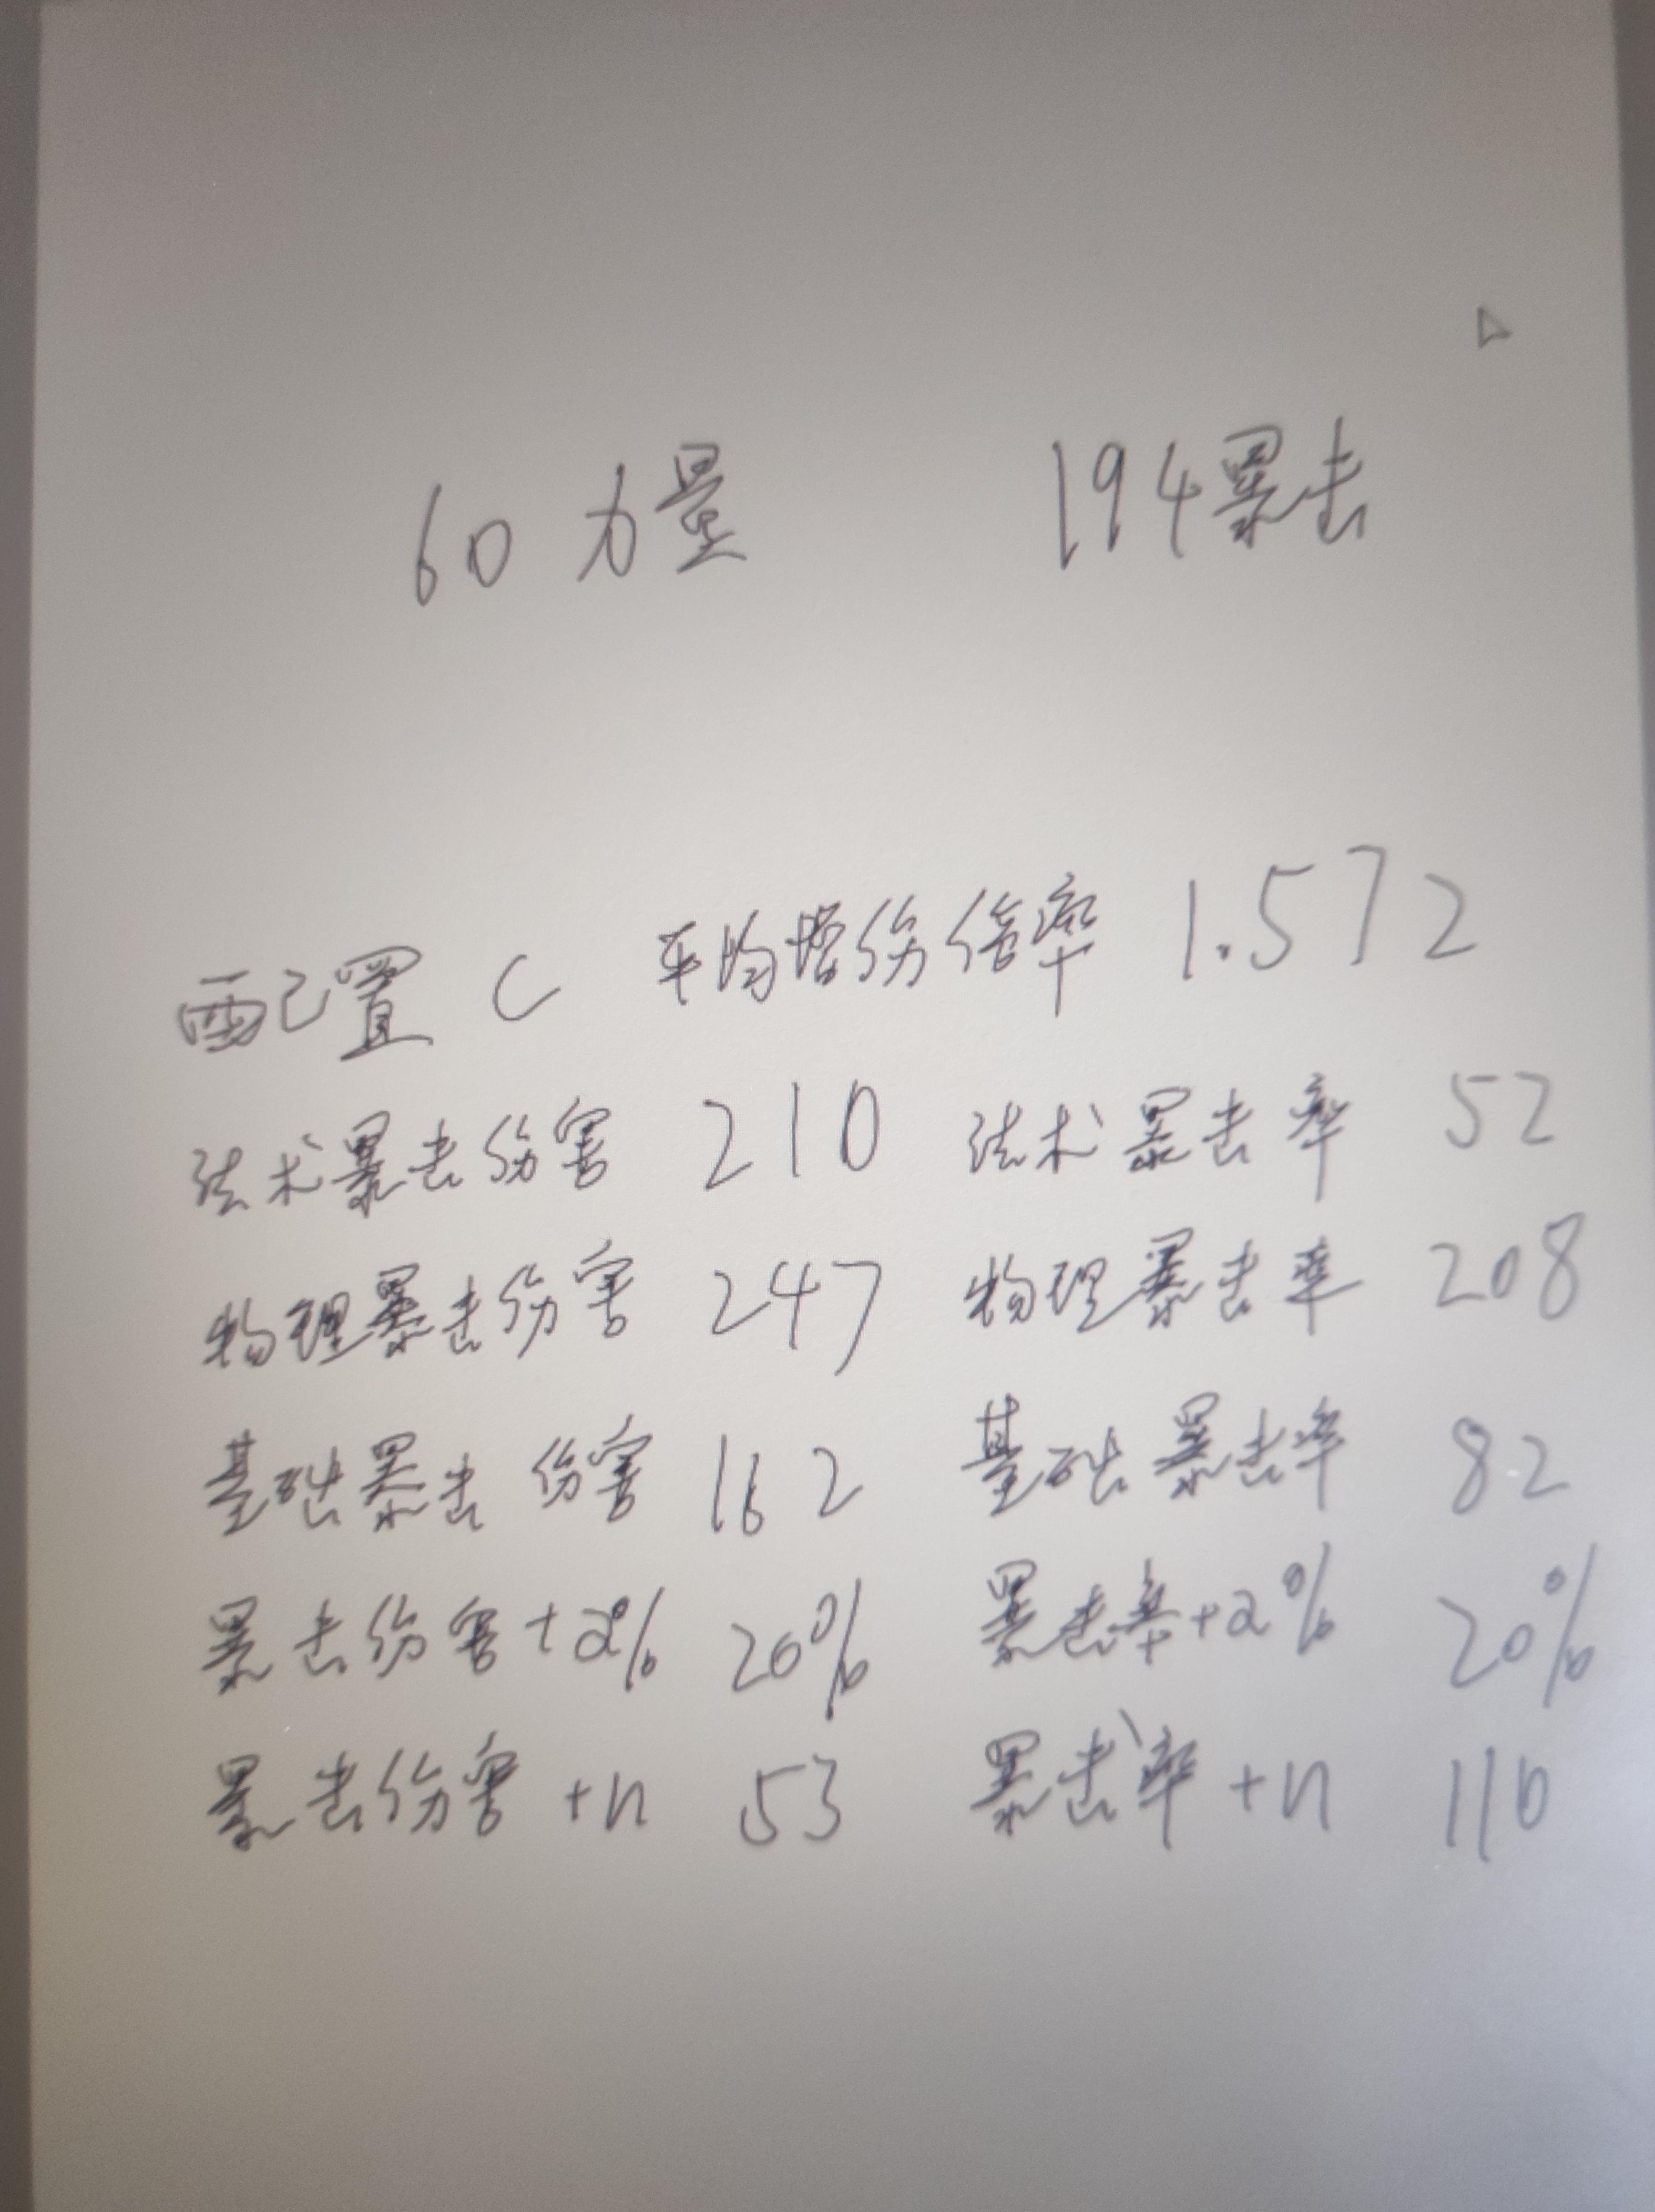 60 力量 194暴击
配置 C 平均增伤倍率 1.572
法术暴击伤害 210 法术暴击率 52
物理暴击伤害 247 物理暴击率 208
基础暴击伤害 162 基础暴击率 82
暴击伤害+a% 20% 暴击率+a% 20%
暴击伤害+n 53 暴击率+n 110